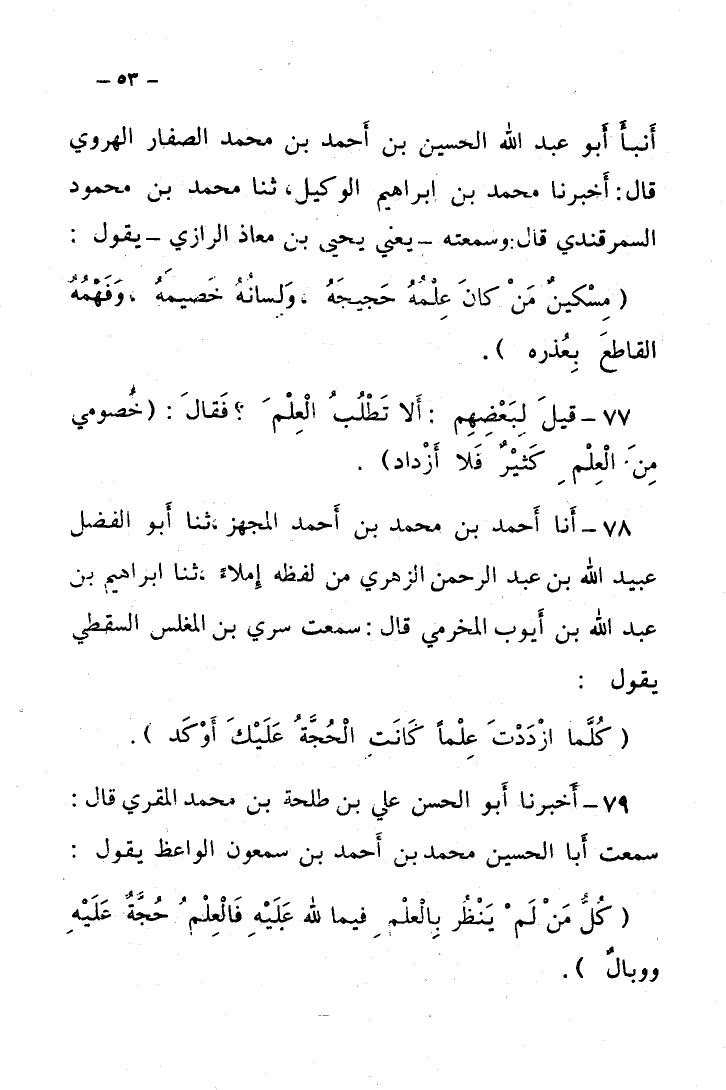 – ٥٣ –
أَنبأَ أَبو عبد الله الحسين بن أَحمد بن محمد الصفار الهروي
قال: أَخبرنا محمد بن ابراهيم الوكيل، ثنا محمد بن محمود
السمرقندي قال: وسمعته – يعني يحيى بن معاذ الرازي – يقول :
( مِسْكينٌ مَنْ كانَ عِلْمُهُ حَجيجَهُ ، وَلِسانُهُ خَصيمَهُ ، وَفَهْمُهُ
القاطعَ بِعُذره ) .
٧٧ – قيلَ لِبَعْضِهِم : أَلا تَطْلُبُ الْعِلْمَ ؟ فَقالَ : (خُصومي
مِنَ الْعِلْمِ كَثيْرٌ فَلا أَزْداد) .
٧٨ – أَنا أَحمد بن محمد بن أَحمد المجهز ، ثنا أَبو الفضل
عبيد الله بن عبد الرحمن الزهري من لفظه إِملاءً ، ثنا ابراهيم بن
عبد الله بن أَيوب المخرمي قال : سمعت سري بن المغلس السقطي
يقول :
( كُلَّما ازْدَدْتَ عِلْماً كانَتِ الْحُجَّةُ عَلَيْكَ أَوْكَد ) .
٧٩ – أَخبرنا أَبو الحسن علي بن طلحة بن محمد المقري قال :
سمعت أَبا الحسين محمد بن أَحمد بن سمعون الواعظ يقول :
( كُلُّ مَنْ لَمْ يَنْظُر بِالْعلْمِ فيما لله عَلَيْهِ فَالْعِلْمُ حُجَّةٌ عَلَيْهِ
ووبالٌ ) .